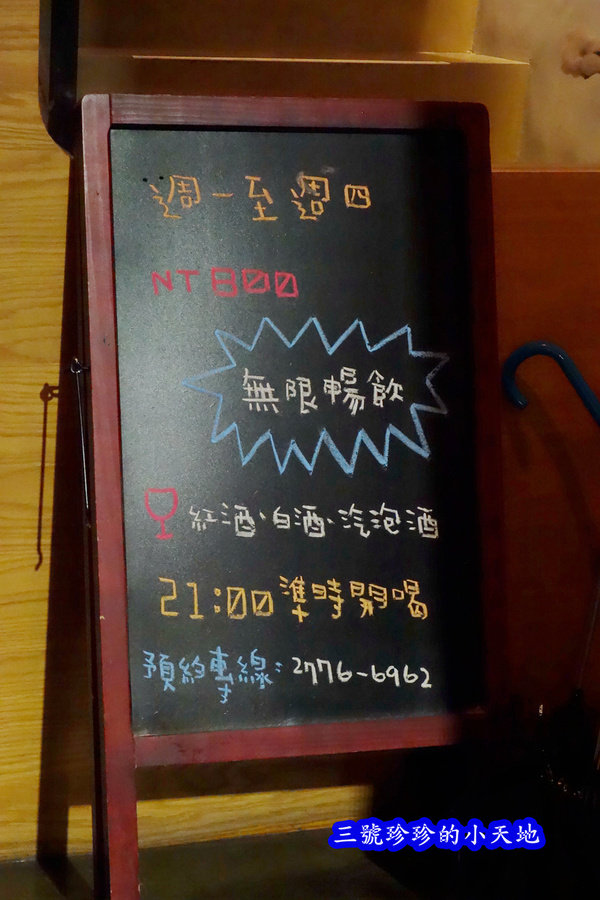 週一至週四
NT800
無限暢飲
紅酒、白酒、汽泡酒
21:00準時開喝
預約專線:2776-6962
三號珍珍的小天地